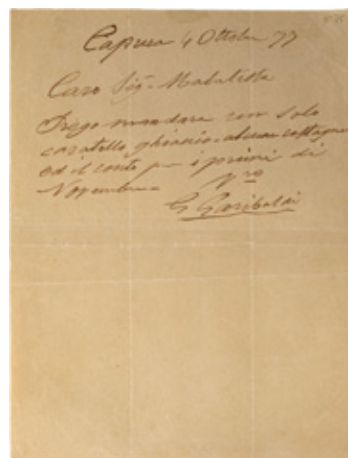 Caprera 4 Ottobre 77
Caro Sig. Malatesta
Prego mandare un solo
caratello ghiacio
ed il conto p i primi di
Novembre
Vro
G Garibaldi